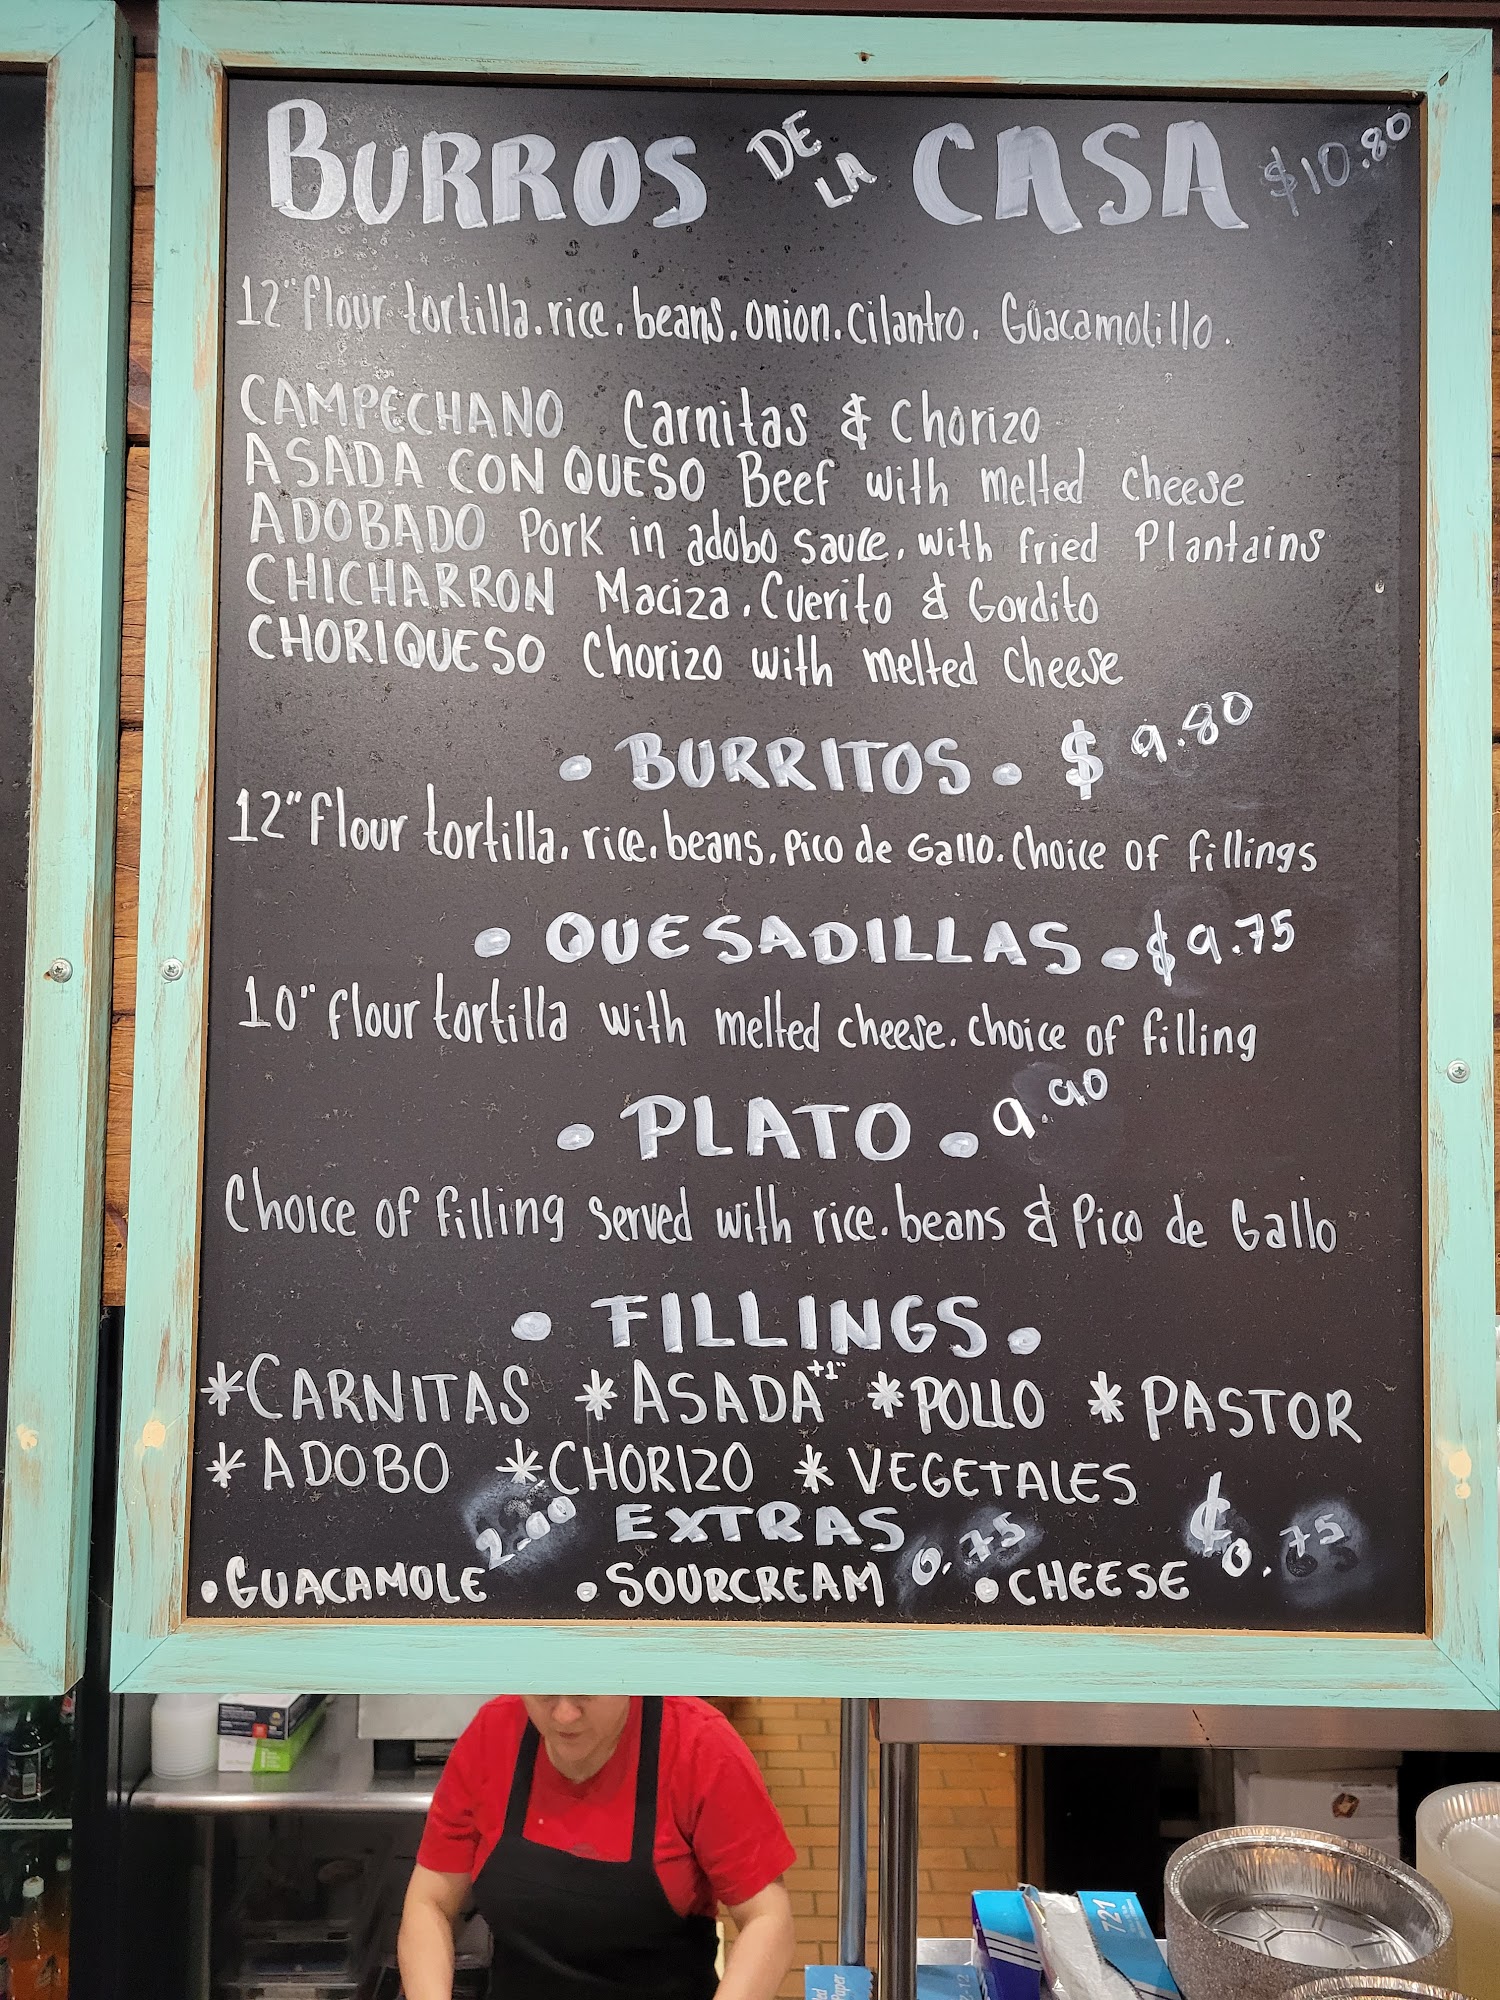 BURROS DE LA CASA $10.80
12" flour tortilla. rice. beans. onion. cilantro. Guacamolillo.
CAMPECHANO Carnitas & Chorizo
ASADA CON QUESO Beef with melted cheese
ADOBADO Pork in adobo sauce. with fried Plantains
CHICHARRON Maciza. Cuerito & Gordito
CHORIQUESO Chorizo with melted cheese
• BURRITOS • $9.80
12" flour tortilla. rice. beans. Pico de Gallo. Choice of fillings
• QUESADILLAS • $9.75
10" flour tortilla with melted cheese. choice of filling
• PLATO • 9.90
Choice of filling served with rice. beans & Pico de Gallo
• FILLINGS •
*CARNITAS *ASADA +1" *POLLO *PASTOR
*ADOBO *CHORIZO *VEGETALES
EXTRAS
•GUACAMOLE 2.00 •SOURCREAM 0.75 •CHEESE $0.75
721